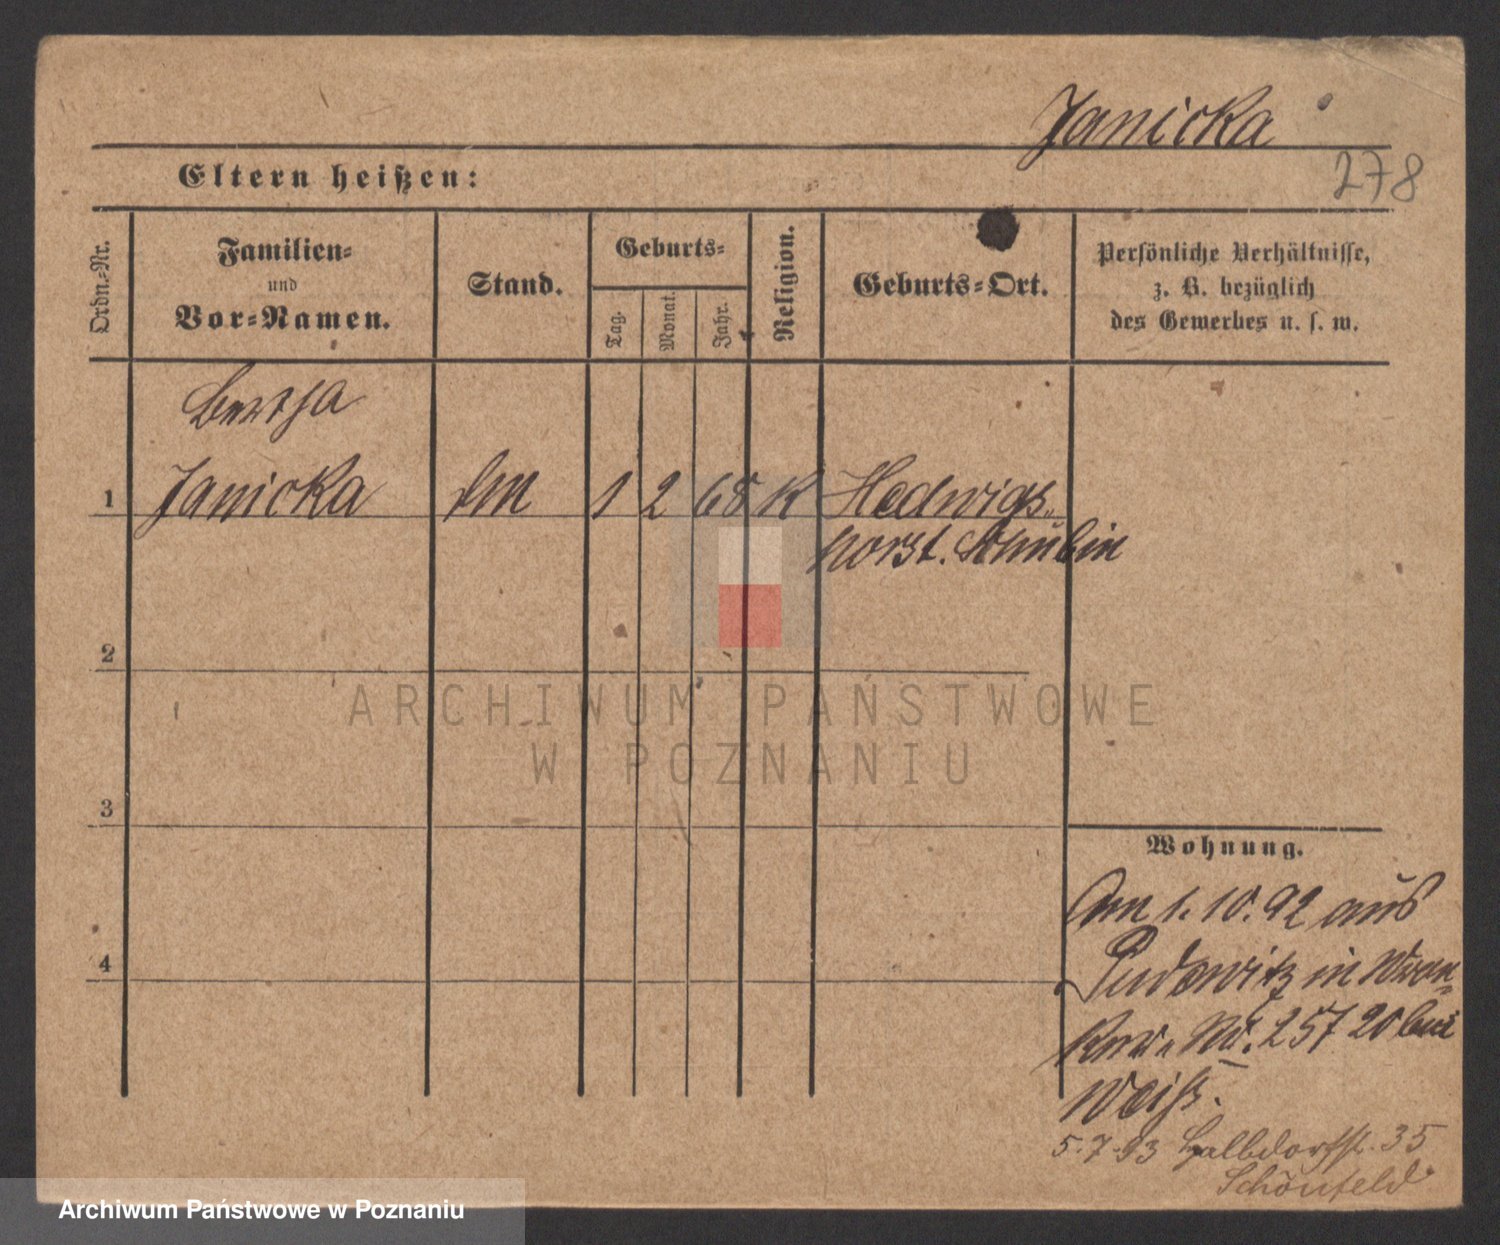 Janicka
278
Eltern heißen:
Ordn.-Nr.
Familien-
und
Vor-Namen.
Stand.
Geburts-
Tag.
Monat.
Jahr.
Religion.
Geburts-Ort.
Persönliche Verhältnisse,
z. B. bezüglich
des Gewerbes u. s. w.
Bertha
1 Janicka 1 2 68 K Hedwigs-
horst. Schubin
2
ARCHIWUM PAŃSTWOWE
W POZNANIU
3
Wohnung.
Am 1.10.92 aus
4
Pudewitz in
Nr. 257 20 bei
Weiß.
5.7.93 Halbdorfstr. 35
Schönfeld
Archiwum Państwowe w Poznaniu